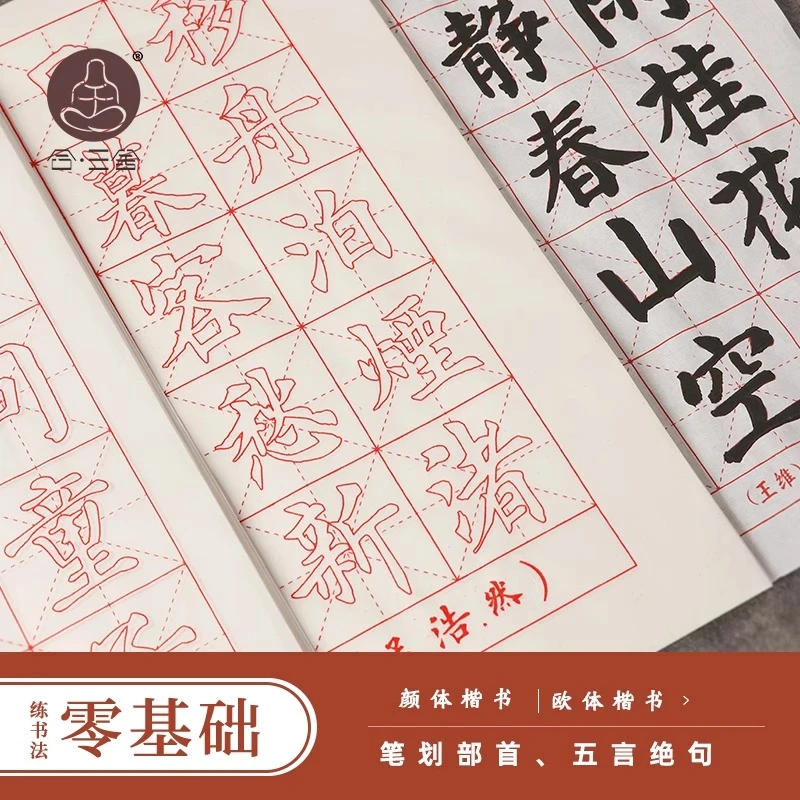 ®
桂花
静春山空
(王维)
移舟泊煙渚
暮客愁新
浩然)
童
练书法
零基础
颜体楷书
欧体楷书 >
笔划部首、五言绝句